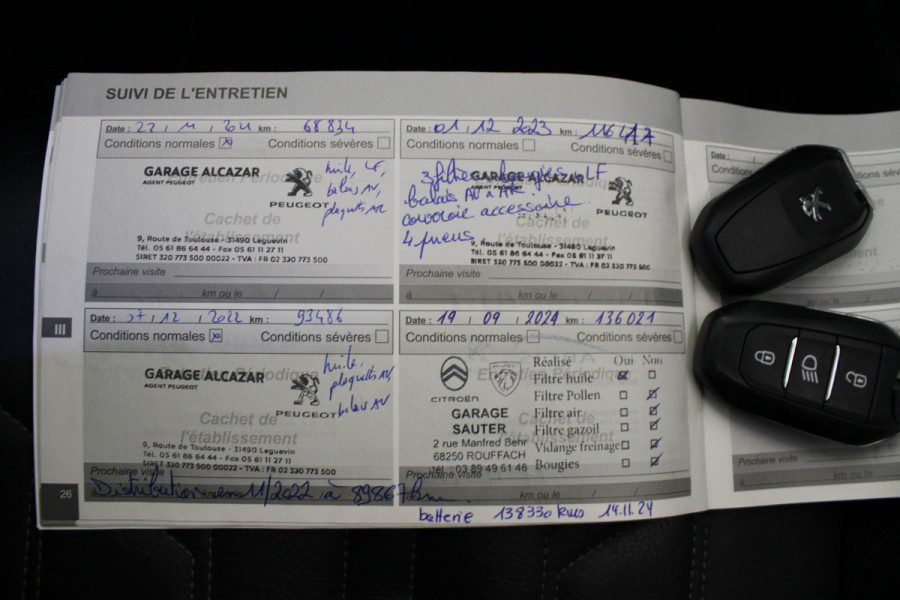 SUIVI DE L'ENTRETIEN
Date : 22 / 11 / 2021 km : 68834
Conditions normales ☒ Conditions sévères ☐
GARAGE ALCAZAR
AGENT PEUGEOT
PEUGEOT
huile, LF,
balais AV,
plaquets AR
Cachet de
l'établissement
9, Route de Toulouse - 31490 Leguevin
Tél. 05 61 86 64 44 - Fax 05 61 11 27 11
SIRET 320 773 500 00022 - TVA : FR 02 320 773 500
Prochaine visite
à km ou le / /
Date : 01 / 12 2023 km : 116417
Conditions normales ☐ Conditions sévères ☐
GARAGE ALCAZAR
AGENT PEUGEOT
PEUGEOT
3 filtres bougies LF
balais AV + AR
courroie accessoire
4 pneus
Cachet de
l'établissement
9, Route de Toulouse - 31490 Leguevin
Tél. 05 61 86 64 44 - Fax 05 61 11 27 11
SIRET 320 773 500 00022 - TVA : FR 02 320 773 500
Prochaine visite
à km ou le / /
III
Date : 07 / 12 / 2022 km : 93486
Conditions normales ☒ Conditions sévères ☐
GARAGE ALCAZAR
AGENT PEUGEOT
PEUGEOT
huile,
plaquetts AV,
balais AV
Cachet de
l'établissement
9, Route de Toulouse - 31490 Leguevin
Tél. 05 61 86 64 44 - Fax 05 61 11 27 11
SIRET 320 773 500 00022 - TVA : FR 02 320 773 500
Prochaine visite
Distribution en 11/2022 à 89867 km
26
Date : 19 / 09 / 2024 km : 136021
Conditions normales ☐ Conditions sévères ☐
CITROËN
GARAGE
SAUTER
2 rue Manfred Behr
68250 ROUFFACH
Tél : 03 89 49 61 46
Réalisé Oui Non
Filtre huile ☒ ☐
Filtre Pollen ☐ ☑
Filtre air ☐ ☑
Filtre gazoil ☐ ☑
Vidange freinage ☐ ☑
Bougies ☐ ☑
Prochaine visite
km ou le / /
batterie 138330 kms 14.11.24
Date :
Conditions